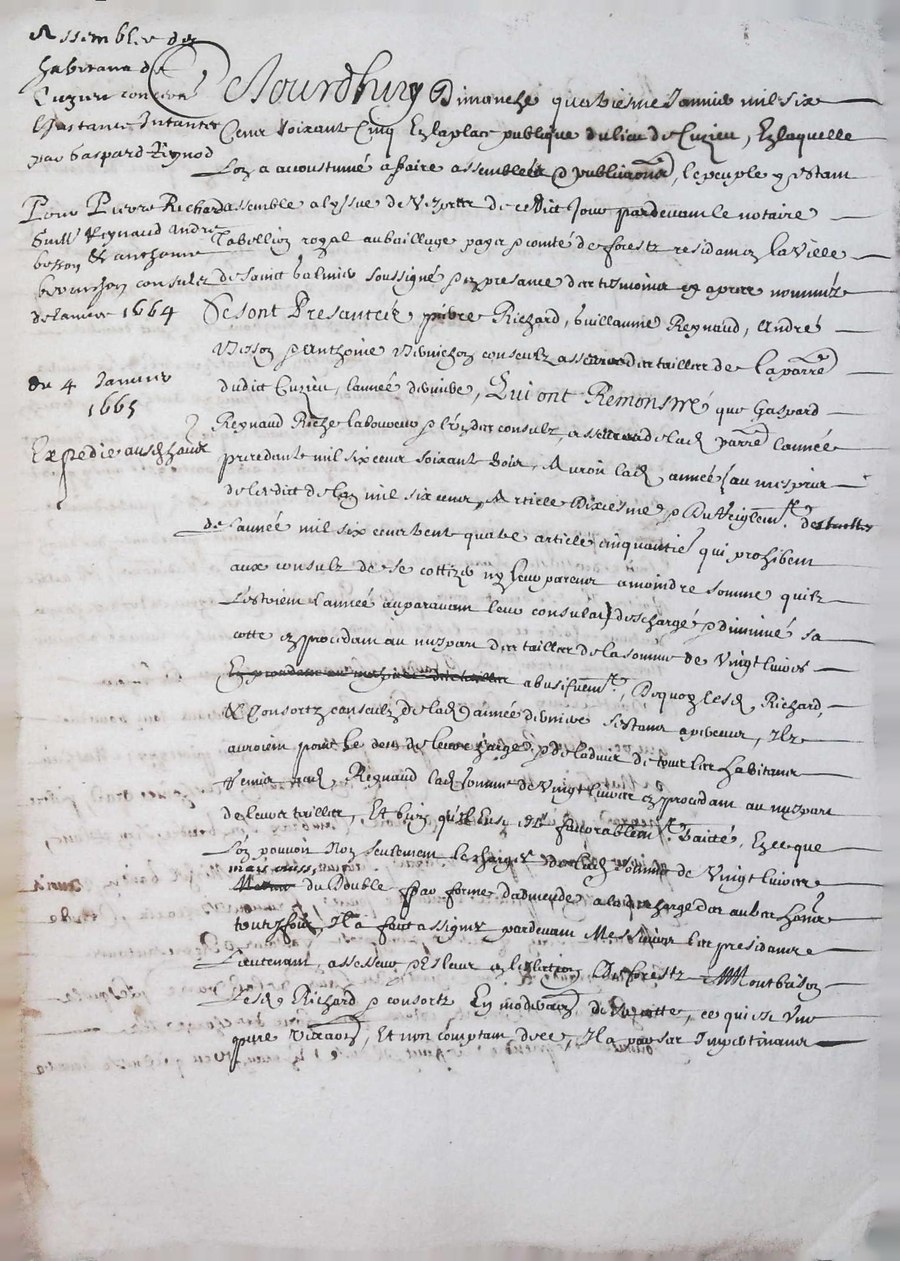 Assemblee des
habitans de
Cuzieu contre
Instance Intantee
par Gaspard Reynod
Pour Pierre Richard
Guill. Reynaud Andre
besson & anthoine
consulz
de lannee 1664
du 4 Januier
1665
Expedie ausd. sieurs
Cejourdhuy Dimanche quatriesme Januier mil six
Cens soixante Cinq En la place publique du lieu de Cuzieu, En laquelle
Lon a accoustumé a faire assemblees & publicaons, le peuple y estant
assemble a lyssue de Vespres de cedict Jour pardeuant le notaire
Tabellion royal au bailliage pays & comté de forestz residant en la Ville
de sainct Galmier soussigné & en presance des tesmoins cy apres nommés
Se sont Presantés pierre Richard, Guillaume Reynaud, André
Besson & Anthoine consulz des tailles de la parre
dudict Cuzieu, lannée derniere, Qui ont Remonstré que Gaspard
Reynaud Riche laboureur & lun des consulz de lad. parre lannée
precedante mil six cens soixante trois, Auroit lad. année au mespris
de ledict de lan mil six cens, Article Dixiesme & du Reiglemt. des tailles
de lannée mil six cens trente quatre article cinquantie qui prohibent
aux consulz de se cottizer ny leurs parens a moindre somme quilz
Lestoient lannée auparauant leur consulat deschargé & diminué sa
cotte en procedant au des tailles de la somme de Vingt liures
En procedant au des tailles abusifuemt., Dequoy lesd. Richard,
& Consortz consulz de lad. année derniere sestans aperceus, Ilz
auroient pour le deu de leurs charges & de ladvis de tous les habitans
remis aud. Reynaud lad. somme de Vingt liures en procedant au
de leurs tailles, Et bien quil Eusy Esté fauorablemt. traicté, En ce que
Lon pouuoit Non seullement le charger de lad. somme de Vingt liures
mais aussy
du Double par forme dadmende a la descharge des autres
toutesfois Il a faict assigner pardeuant Messieurs les presidans
Lieutenant, assesseur & Esleuz en lelection de forestz a Montbrison
Lesd. Richard & consortz En moderaon de sa cotte, ce qui est Une
pure Vexaon, Et non comptant dece, Il a par ser Impertinans